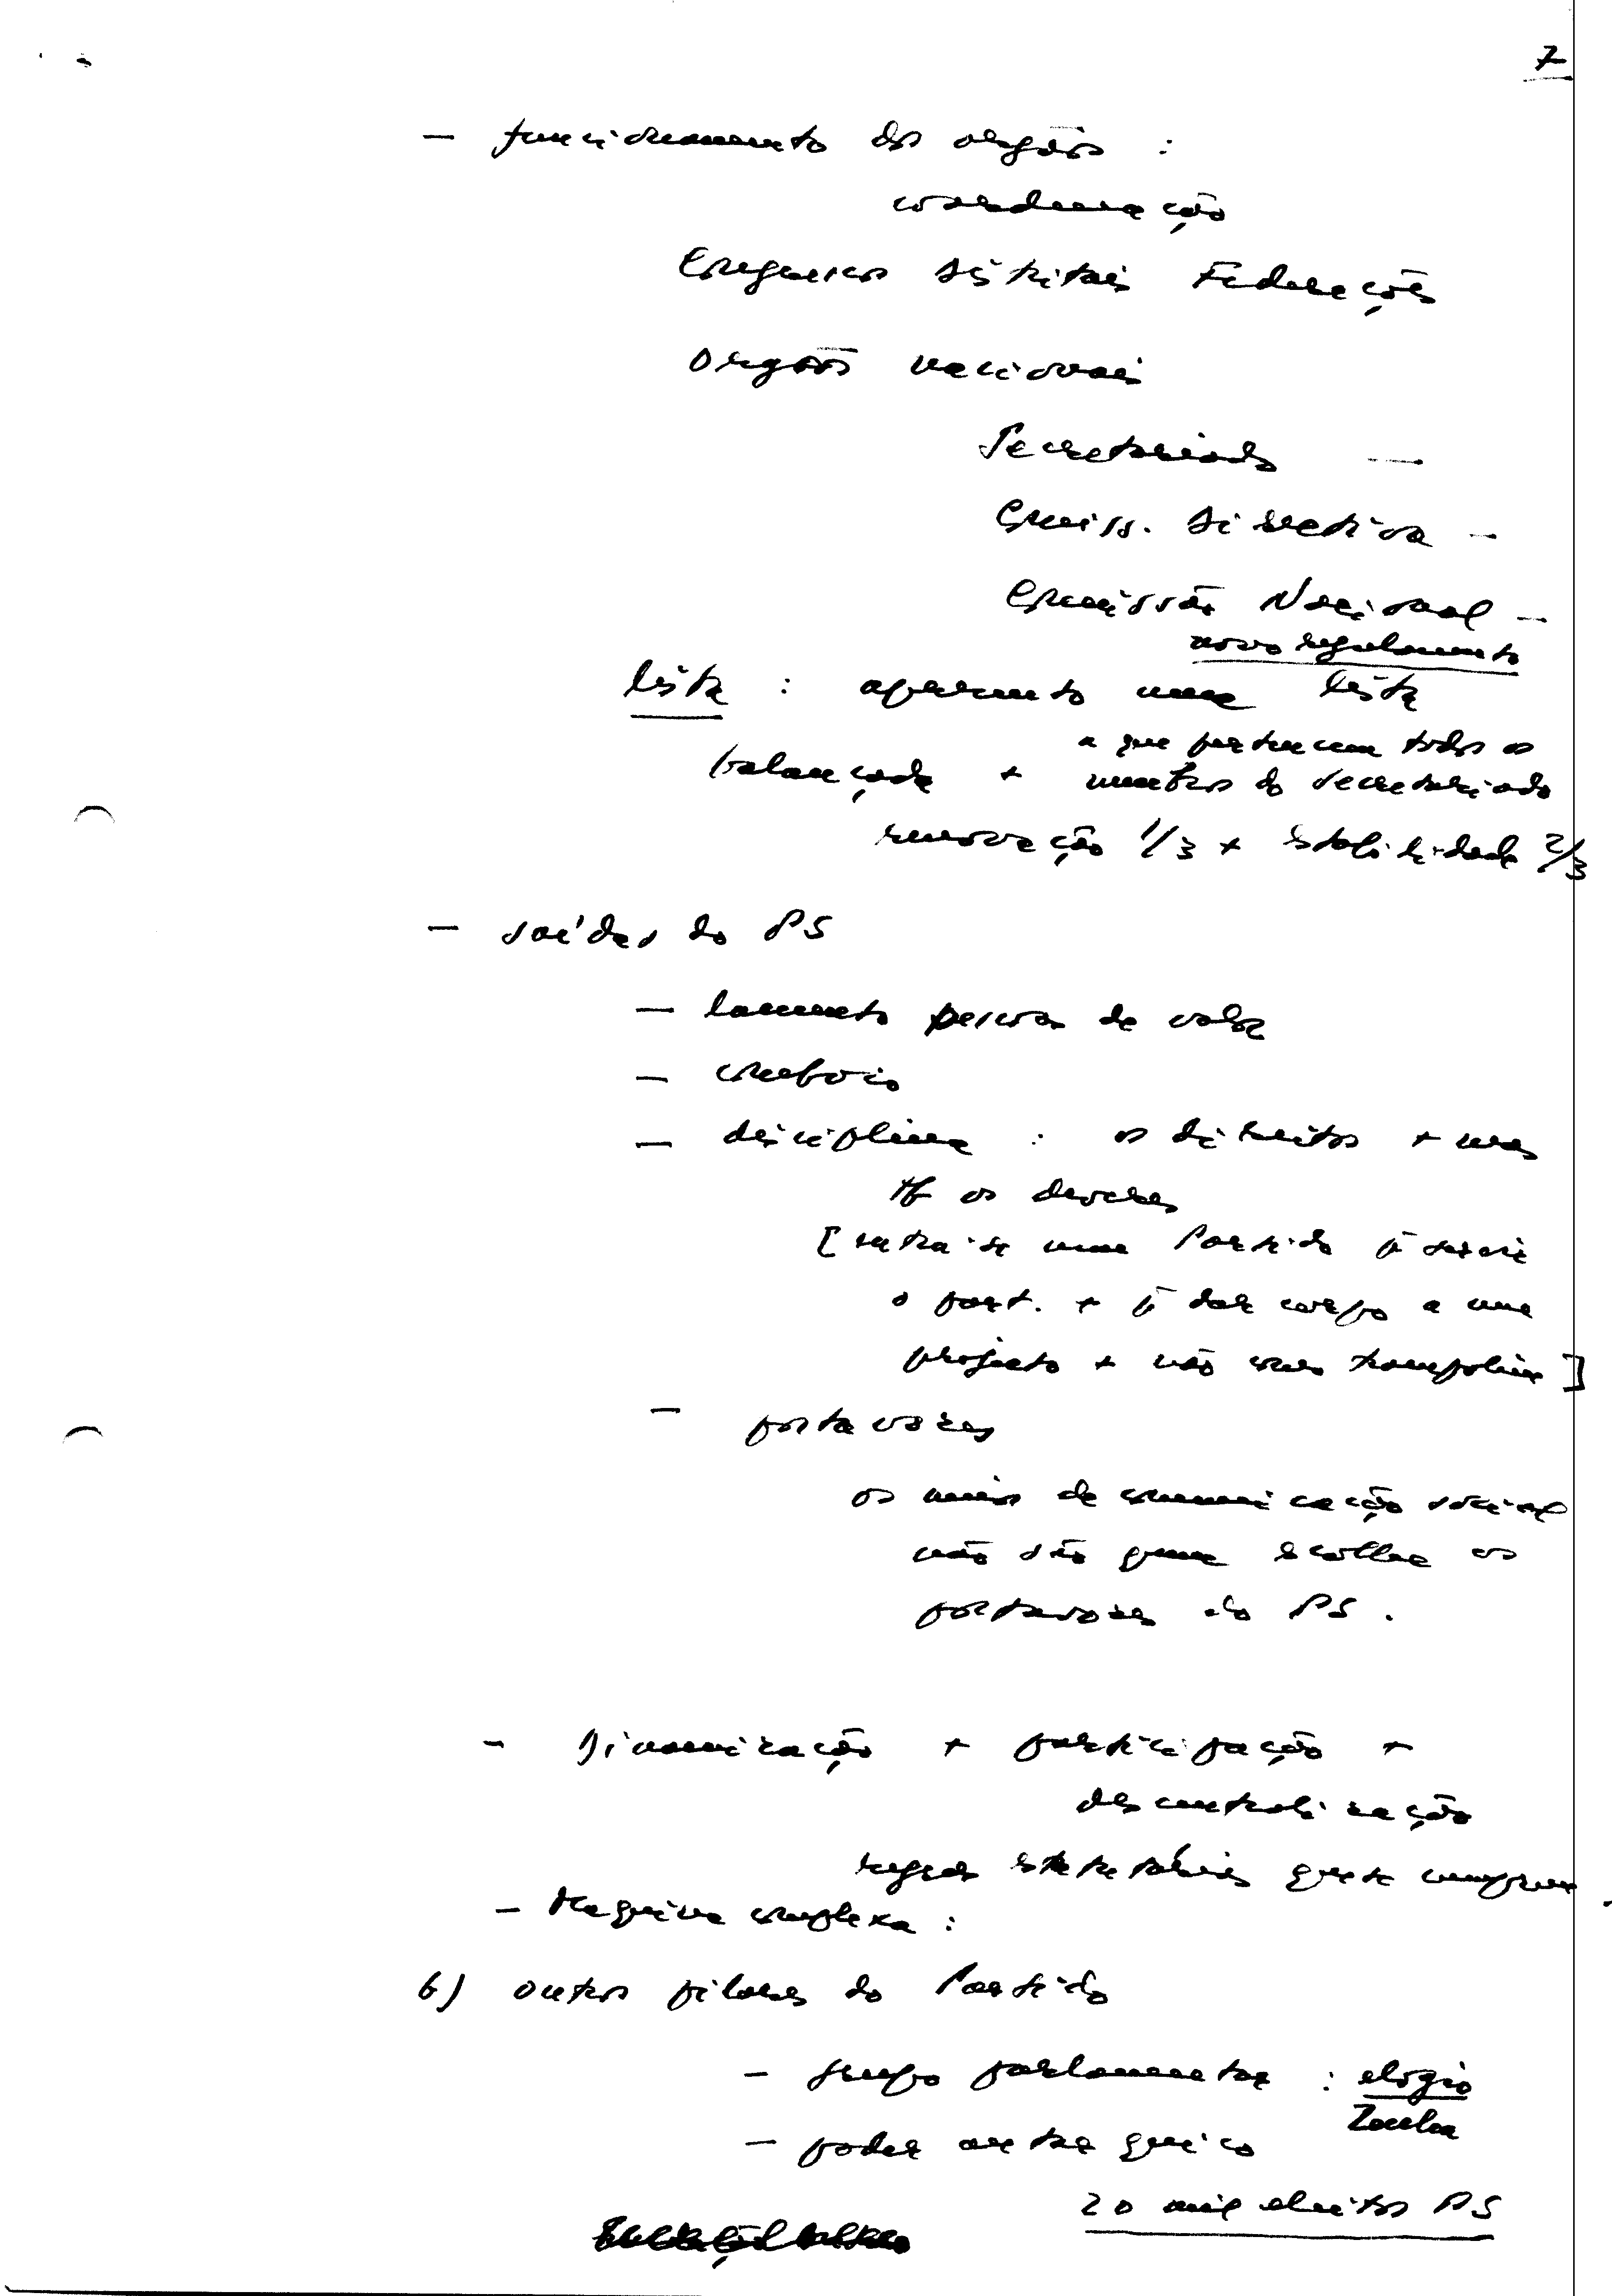 7
– funcionamento dos orgãos :
coordenação
Congressos distritais Federações
Orgãos nacionais
Secretariado –
Comiss. Directiva –
Comissão Nacional –
novo regulamento
lista : apresento uma lista
a que pertencem todos os
balançada + membros do secretariado
renovação 1/3 + estabilidade 2/3
– saídas do PS
– lamento pessoas de valor
– comboio
– disciplina : os direitos + mas
tb os deveres
[ entra-se num Partido p/ servir
o part. + p/ dar corpo a um
projecto + não como trampolim ]
– porta vozes
os meios de comunicação social
não são quem escolhe os
portavozes do PS .
– Dinamização + participação +
descentralização
regras estatutárias que se cumprem .
– Maquina complexa :
6) outros pilares do Partido
– grupo parlamentar : elogio
– poder autarquico
20 mil eleitos PS